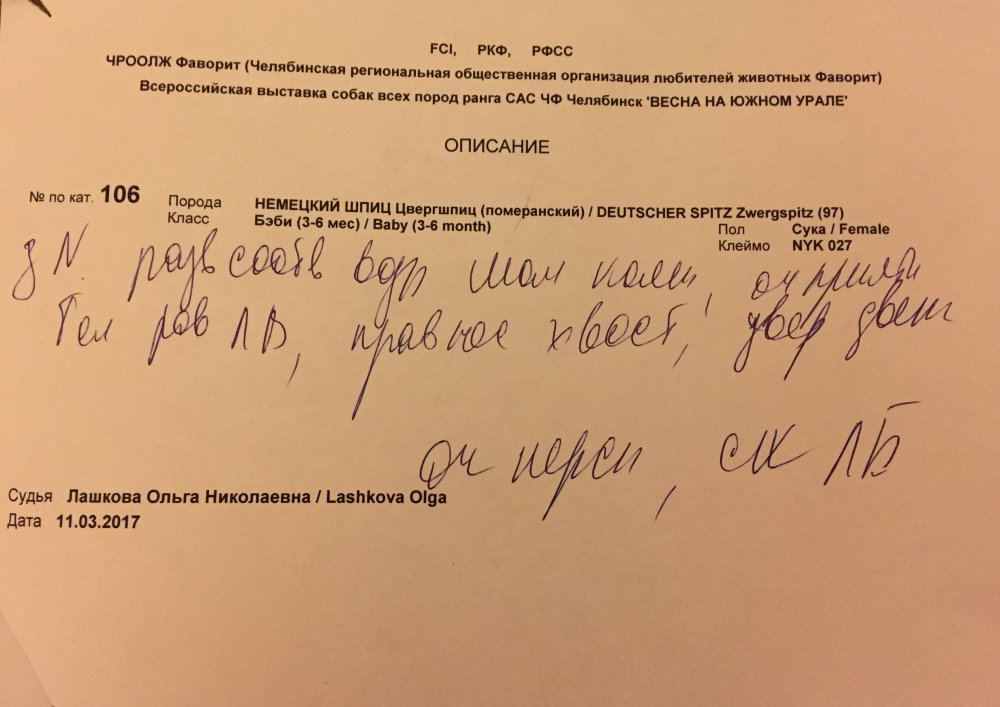 FCI, РКФ, РФСС
ЧРООЛЖ Фаворит (Челябинская региональная общественная организация любителей животных Фаворит)
Всероссийская выставка собак всех пород ранга САС ЧФ Челябинск 'ВЕСНА НА ЮЖНОМ УРАЛЕ'
ОПИСАНИЕ
№ по кат. 106
Порода НЕМЕЦКИЙ ШПИЦ Цвергшпиц (померанский) / DEUTSCHER SPITZ Zwergspitz (97)
Класс Бэби (3-6 мес) / Baby (3-6 month)
Пол Сука / Female
Клеймо NYK 027
з N. разв соотв возр
рав ЛВ, прав пос хвост, увер движ
оч персп, СК ЛБ
Судья Лашкова Ольга Николаевна / Lashkova Olga
Дата 11.03.2017